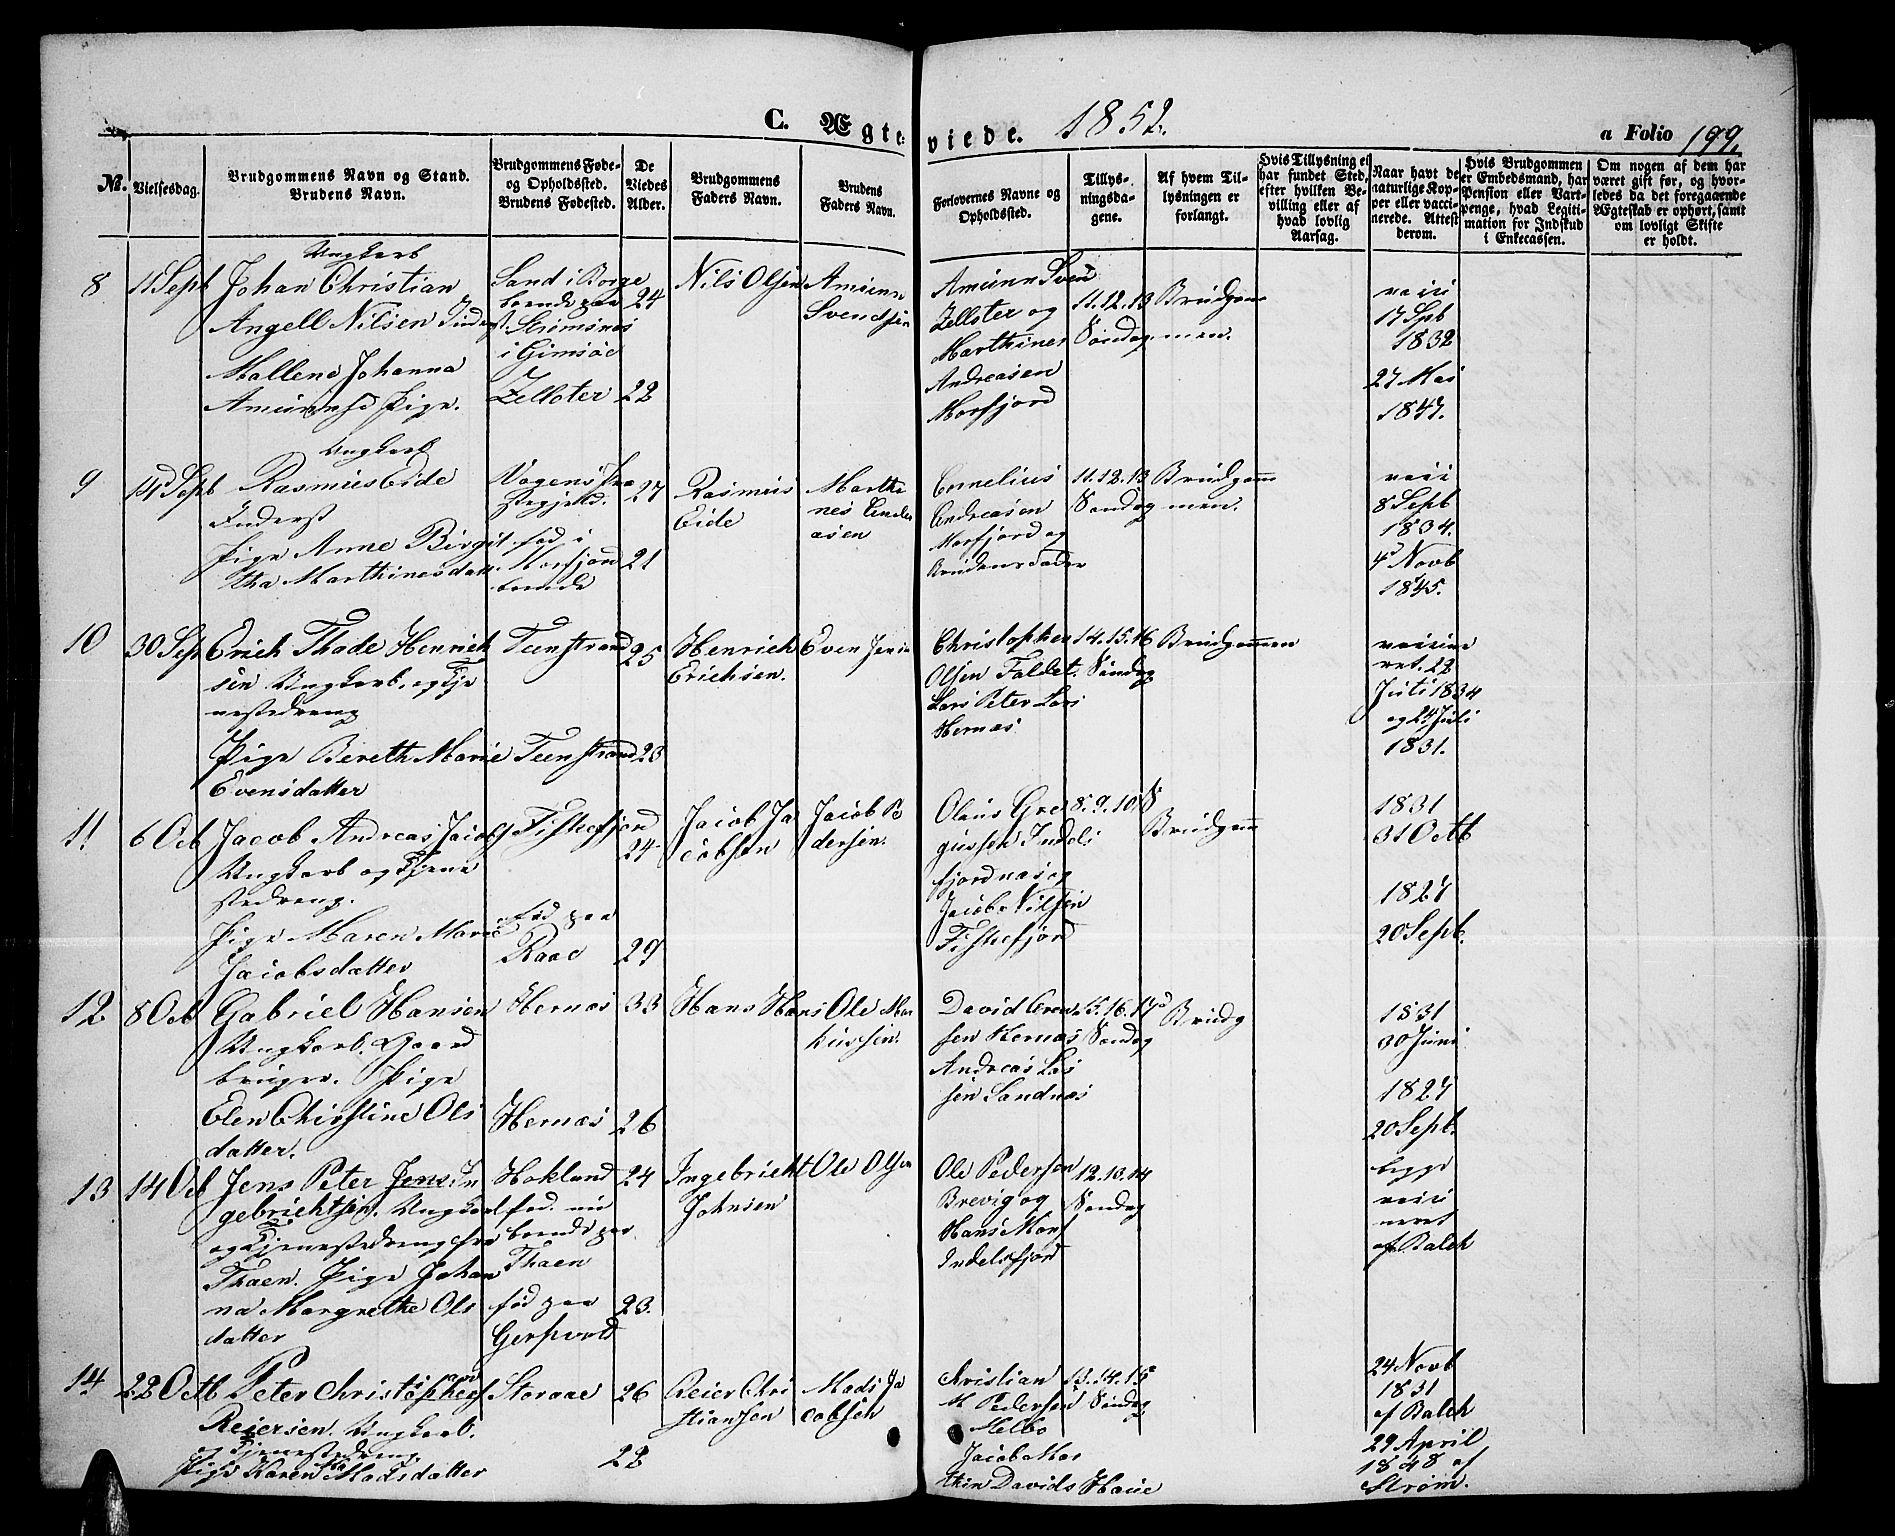 C. Ægteviede. 1852. a Folio 199.
No.
Vielsesdag.
Brudgommens Navn og Stand.
Brudens Navn.
Brudgommens Føde-
og Opholdssted.
Brudens Fødested.
De
Viedes
Alder.
Brudgommens
Faders Navn.
Brudens
Faders Navn.
Forlovernes Navne og
Opholdssted.
Tillys-
ningsda-
gene.
Af hvem Til-
lysningen er
forlangt.
Hvis Tillysning ei
har fundet Sted,
efter hvilken Be-
villing eller af
hvad lovlig
Aarsag.
Naar havt de
naturlige Kop-
per eller vacci-
nerede. Attest
derom.
Hvis Brudgommen
er Embedsmand, har
Pension eller Vart-
penge, hvad Legiti-
mation for Indskud
i Enkecassen.
Om nogen af dem har
været gift før, og hvor-
ledes da det foregaaende
Ægteskab er ophørt, samt
om lovligt Skifte
er holdt.
8
11 Sept
Ungkarl
Johan Christian
Angell Nilsen Inderst.
Mallene Johanna
Pige.
Sand i Borge
boende paa
Strømsnes
i Gimsøe
Zellster
24
22
Nils Olsen
Amunn
Svendsen
Amunn Svend
Zellster og
Marthines
Andreasen
Morfjord
11. 12. 13
Søndag
Brudgom
men.
vacci
17 Spb
1832
27 Mai
1847.
9
14 Sept
Ungkarl
Rasmus Eide
Inderst
Pige Anne Birgit
tha Marthinesdatt.
Vogens fra
Prgjeld.
fød i
Morfjord
boende
27
21
Rasmus
Eide
Marthi
nes Andre
asen
Cornelius
Andreasen
Morfjord og
Brudens Fader
11. 12. 13
Søndag
Brudgom
men.
vacci
8 Sept
1834.
4d Novb
1845.
10
30 Sept
Erich Thade Henrich
sen Ungkarl. og Tje
nestedreng
Pige Bereth Marie
Evensdatter
Teenstrand
Teenstrand
25
23
Henrich
Erichsen.
Even
Christopher
Olsen Faldet.
Lars Peter Lars
Hernæs
14. 15. 16
Søndag
Brudgommen
vaccine
ret. 22
Juli 1834
og 24 Juli
1831.
11
6 Octb
Jacob Andreas Jacobs
Ungkarl og Tjene
stedreng.
Pige Maren Marie
Jacobsdatter
Fiskefjord
fød paa
Raae
24
29
Jacob Ja
cobsen
Jacob Pe
dersen.
Olaus Gre
gussen Indels
fjordnæs og
Jacob Nilsen
Fiskefjord
8. 9. 10. S
Brudgom
1831
31 Octb
1827
20 Sept.
12
8 Oct
Gabriel Hansen
Ungkarl. Gaard
bruger. Pige
Elen Christine Ols
datter.
Hernæs
Hernæs
33
26
Hans Hans
Ole Mar
kussen.
David Aren
sen Hernæs
Andreas Lar
sen Sandnæs
15. 16. 17d
Søndag
Brudg
1831
30 Juni
1827
20 Sept.
13
14 Oct
Jens Peter Jens. In
gebrichtsen. Ungkarl
og Tjenestedreng fra
Thaen. Pige Johan
na Margrethe Ols
datter
Hokland
fød. nu
boende paa
Thaen
fød paa
24
23.
Ingebricht
Johnsen
Ole Olsen
Ole Pedersen
Brevig og
Hans Mars
Indelsfjord
12. 13. 14
Søndag
begge
vacci
neret
af Balch
14
22 Octb
Peter Christopher
Reiersen. Ungkarl.
og Tjenestedreng.
Pige Karen Madsdatter
Storaae
26
22
Reier Chri
stiansen
Mads Ja
cobsen
Christian
M Pedersen
Melbo
Jacob Mar
thin Davids Haue
13. 14. 15
Søndag
24 Novb
1831
af Balch
29 April
1848 af
Strøm.